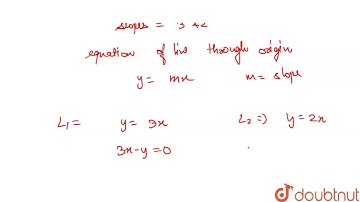 slopes = 3 &2
equation of line through origin
y = mx m = slope
L₁ = y = 3x L₂ => y = 2x
3x-y=0
doubtnut